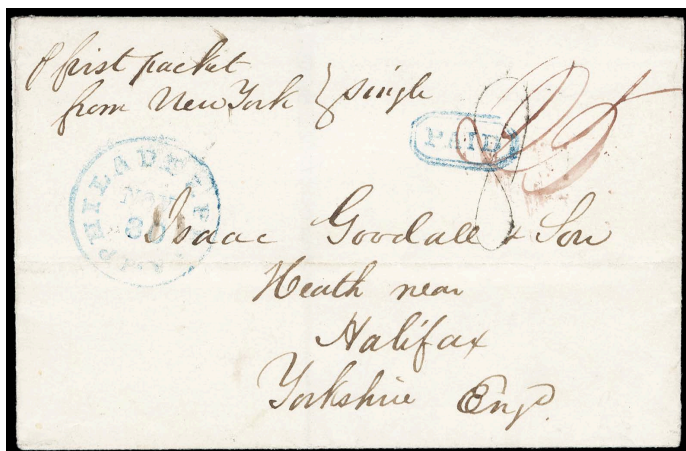 p first packet
from New York } single
PAID
PHILADELPHIA Pa.
NOV
30
Isaac Goodall & Son
Heath near
Halifax
Yorkshire Engd.